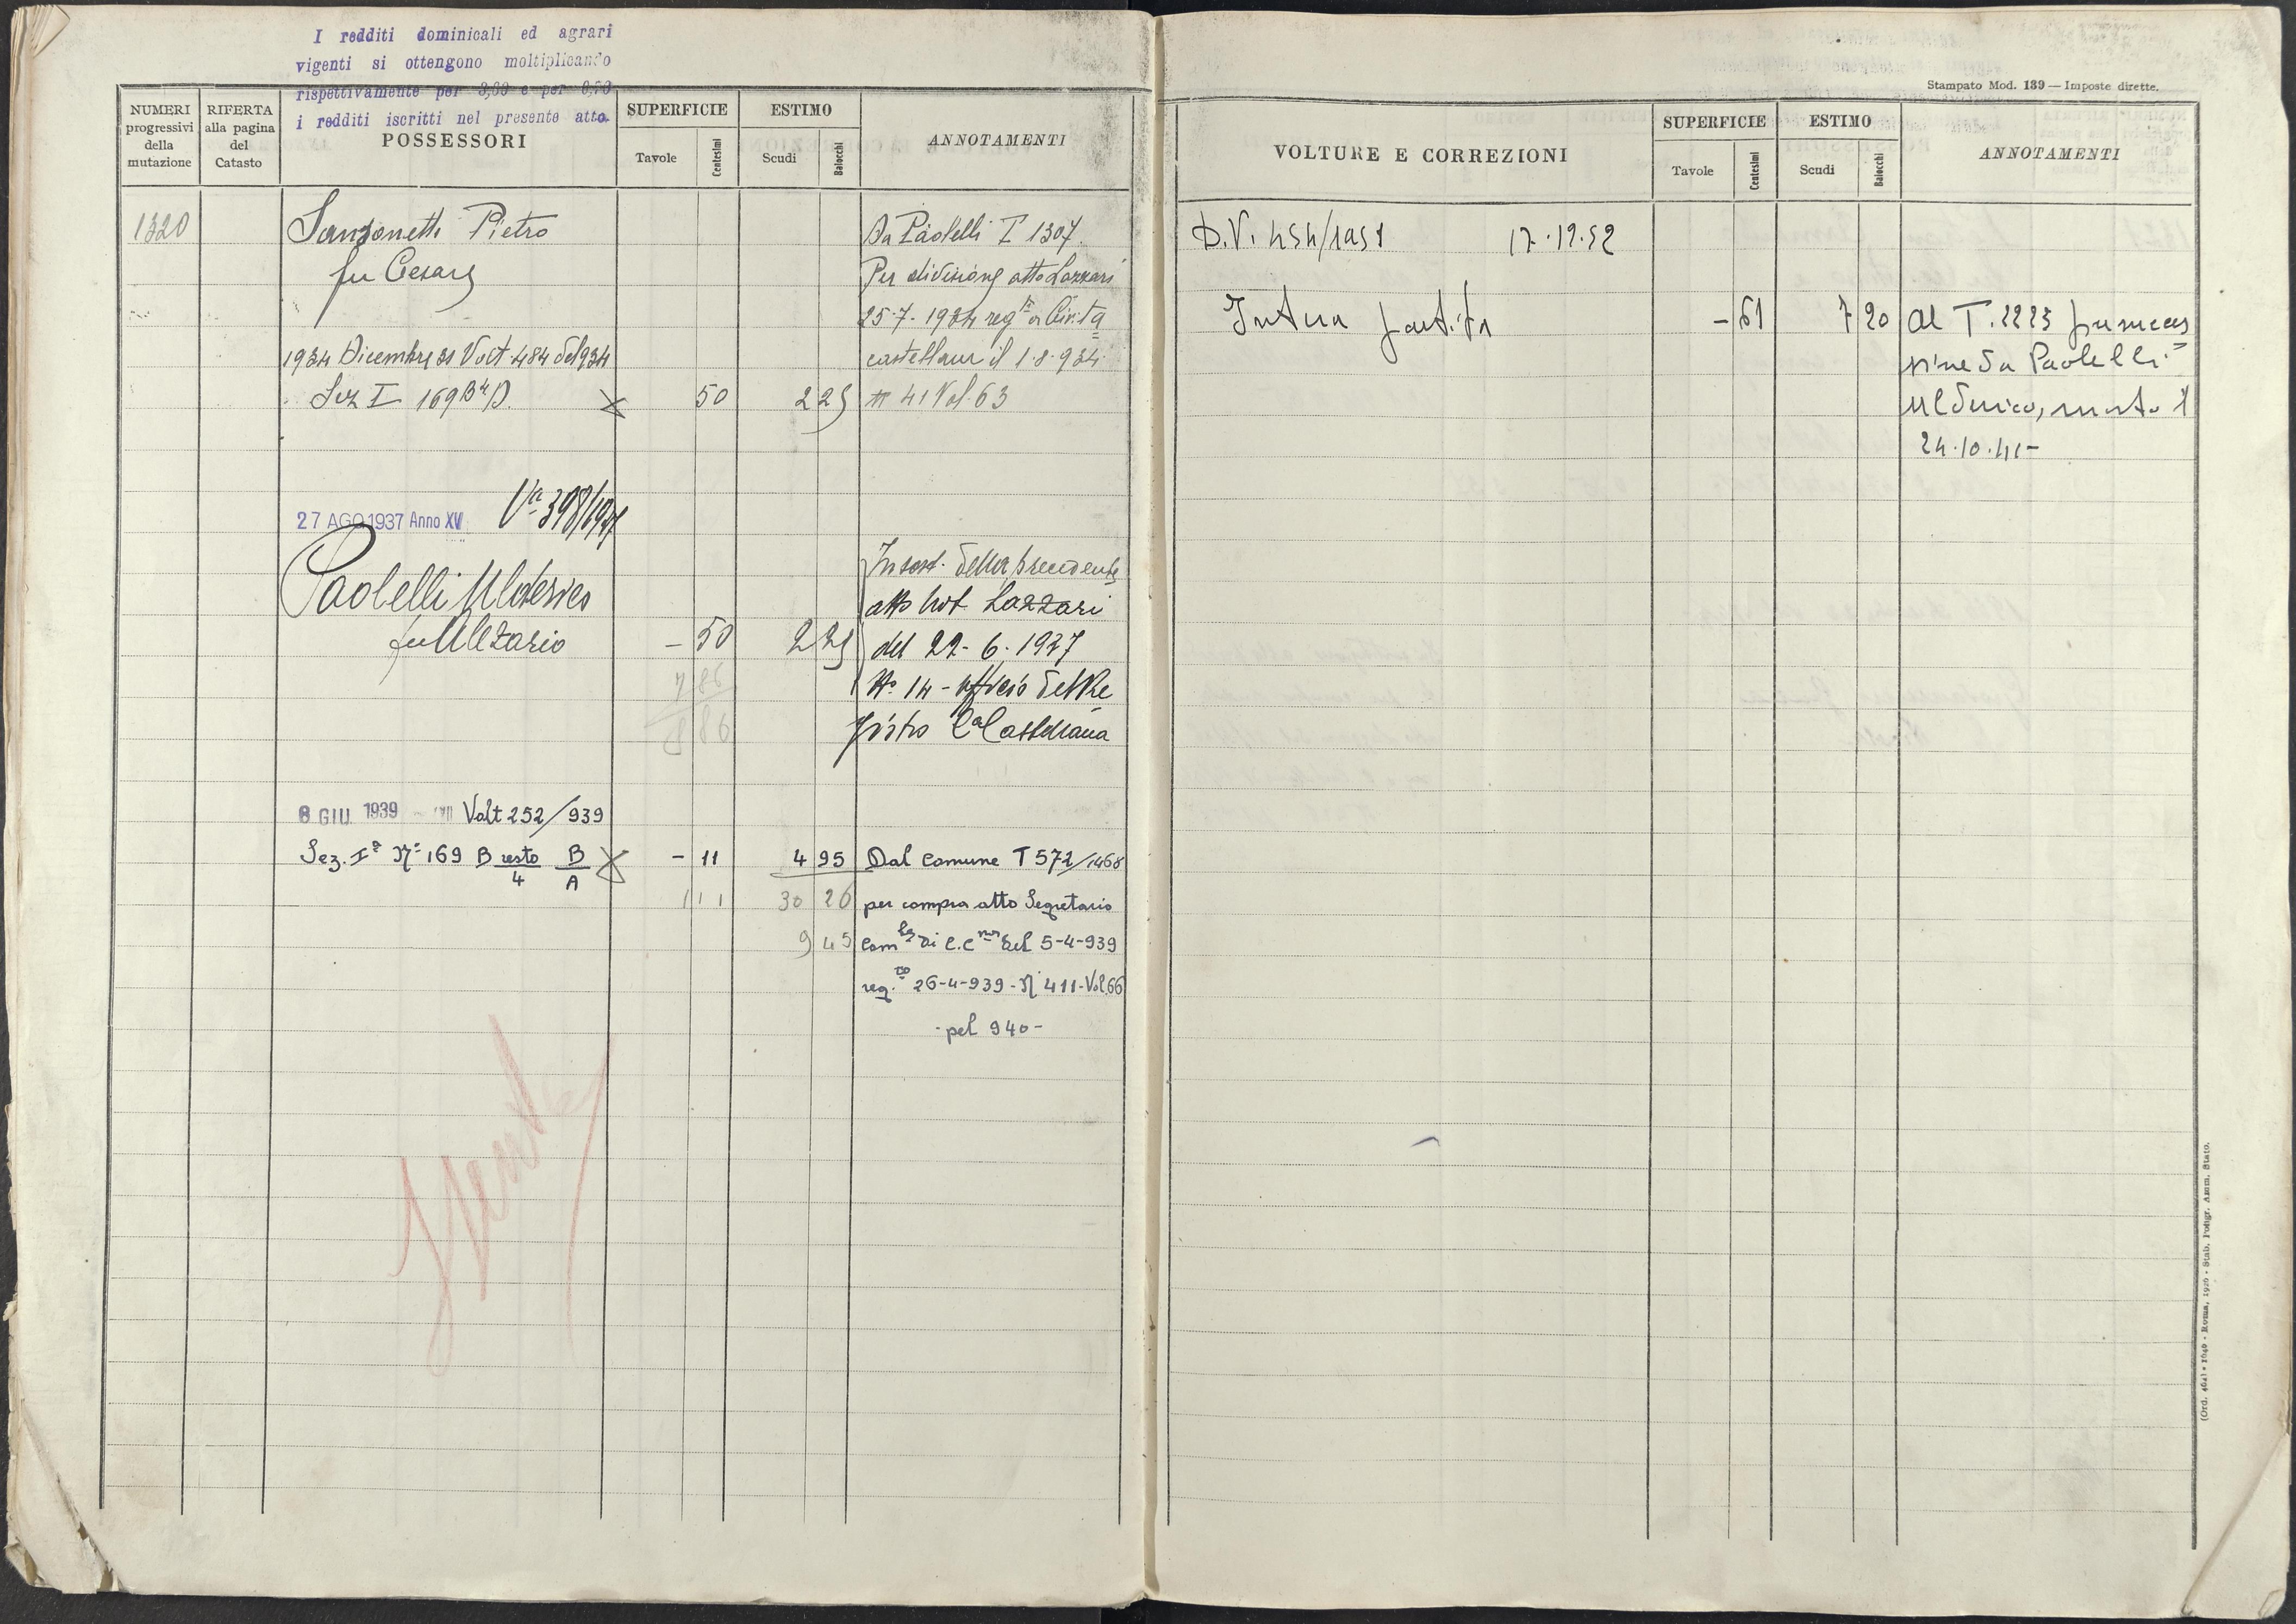 I redditi dominicali ed agrari
vigenti si ottengono moltiplicando
rispettivamente per 3,60 e per 0,70
i redditi iscritti nel presente atto.
NUMERI progressivi della mutazione
RIFERTA alla pagina del Catasto
POSSESSORI
SUPERFICIE
Tavole Centesimi
ESTIMO
Scudi Baiocchi
ANNOTAMENTI
1320 Sanzonetti Pietro Da Paolelli T 1307
fu Cesare Per divisione atto Lazzari
25-7-1934 reg to a Civita
1934 Dicembre 31 Volt. 484 del 934 castellana il 1-8-934
Sez I 169 B 4/D. 50 2 25 n 41 Vol. 63
27 AGO 1937 Anno XV Va 398/1937
Paolelli Ulderico
fu Alezario - 50 2 25
In sost. della precedente
atto Not. Lazzari
del 22-6-1937
No. 14 - ufficio del Re
gistro Ca Castellana
7 86
8 86
8 GIU. 1939 Volt 252/939
Sez. Ia No 169 B resto/4 B/A - 11 4 95 Dal Comune T 572/1468
1 11 30 26 per compra atto Segretario
9 45 Com le di C.C na del 5-4-939
reg. to 26-4-939 - N 411 - Vol. 66
- pel 940 -
Spenta
Stampato Mod. 139 — Imposte dirette.
VOLTURE E CORREZIONI
SUPERFICIE
Tavole Centesimi
ESTIMO
Scudi Baiocchi
ANNOTAMENTI
D.V. 454/1951 17.12.52
Intera partita - 61 7 20 al T. 2223 per succes
sione da Paolelli
Ulderico, morto il
24.10.41 -
(Ord. 464) * 1649 - Roma, 1926 - Stab. Poligr. Amm. Stato.